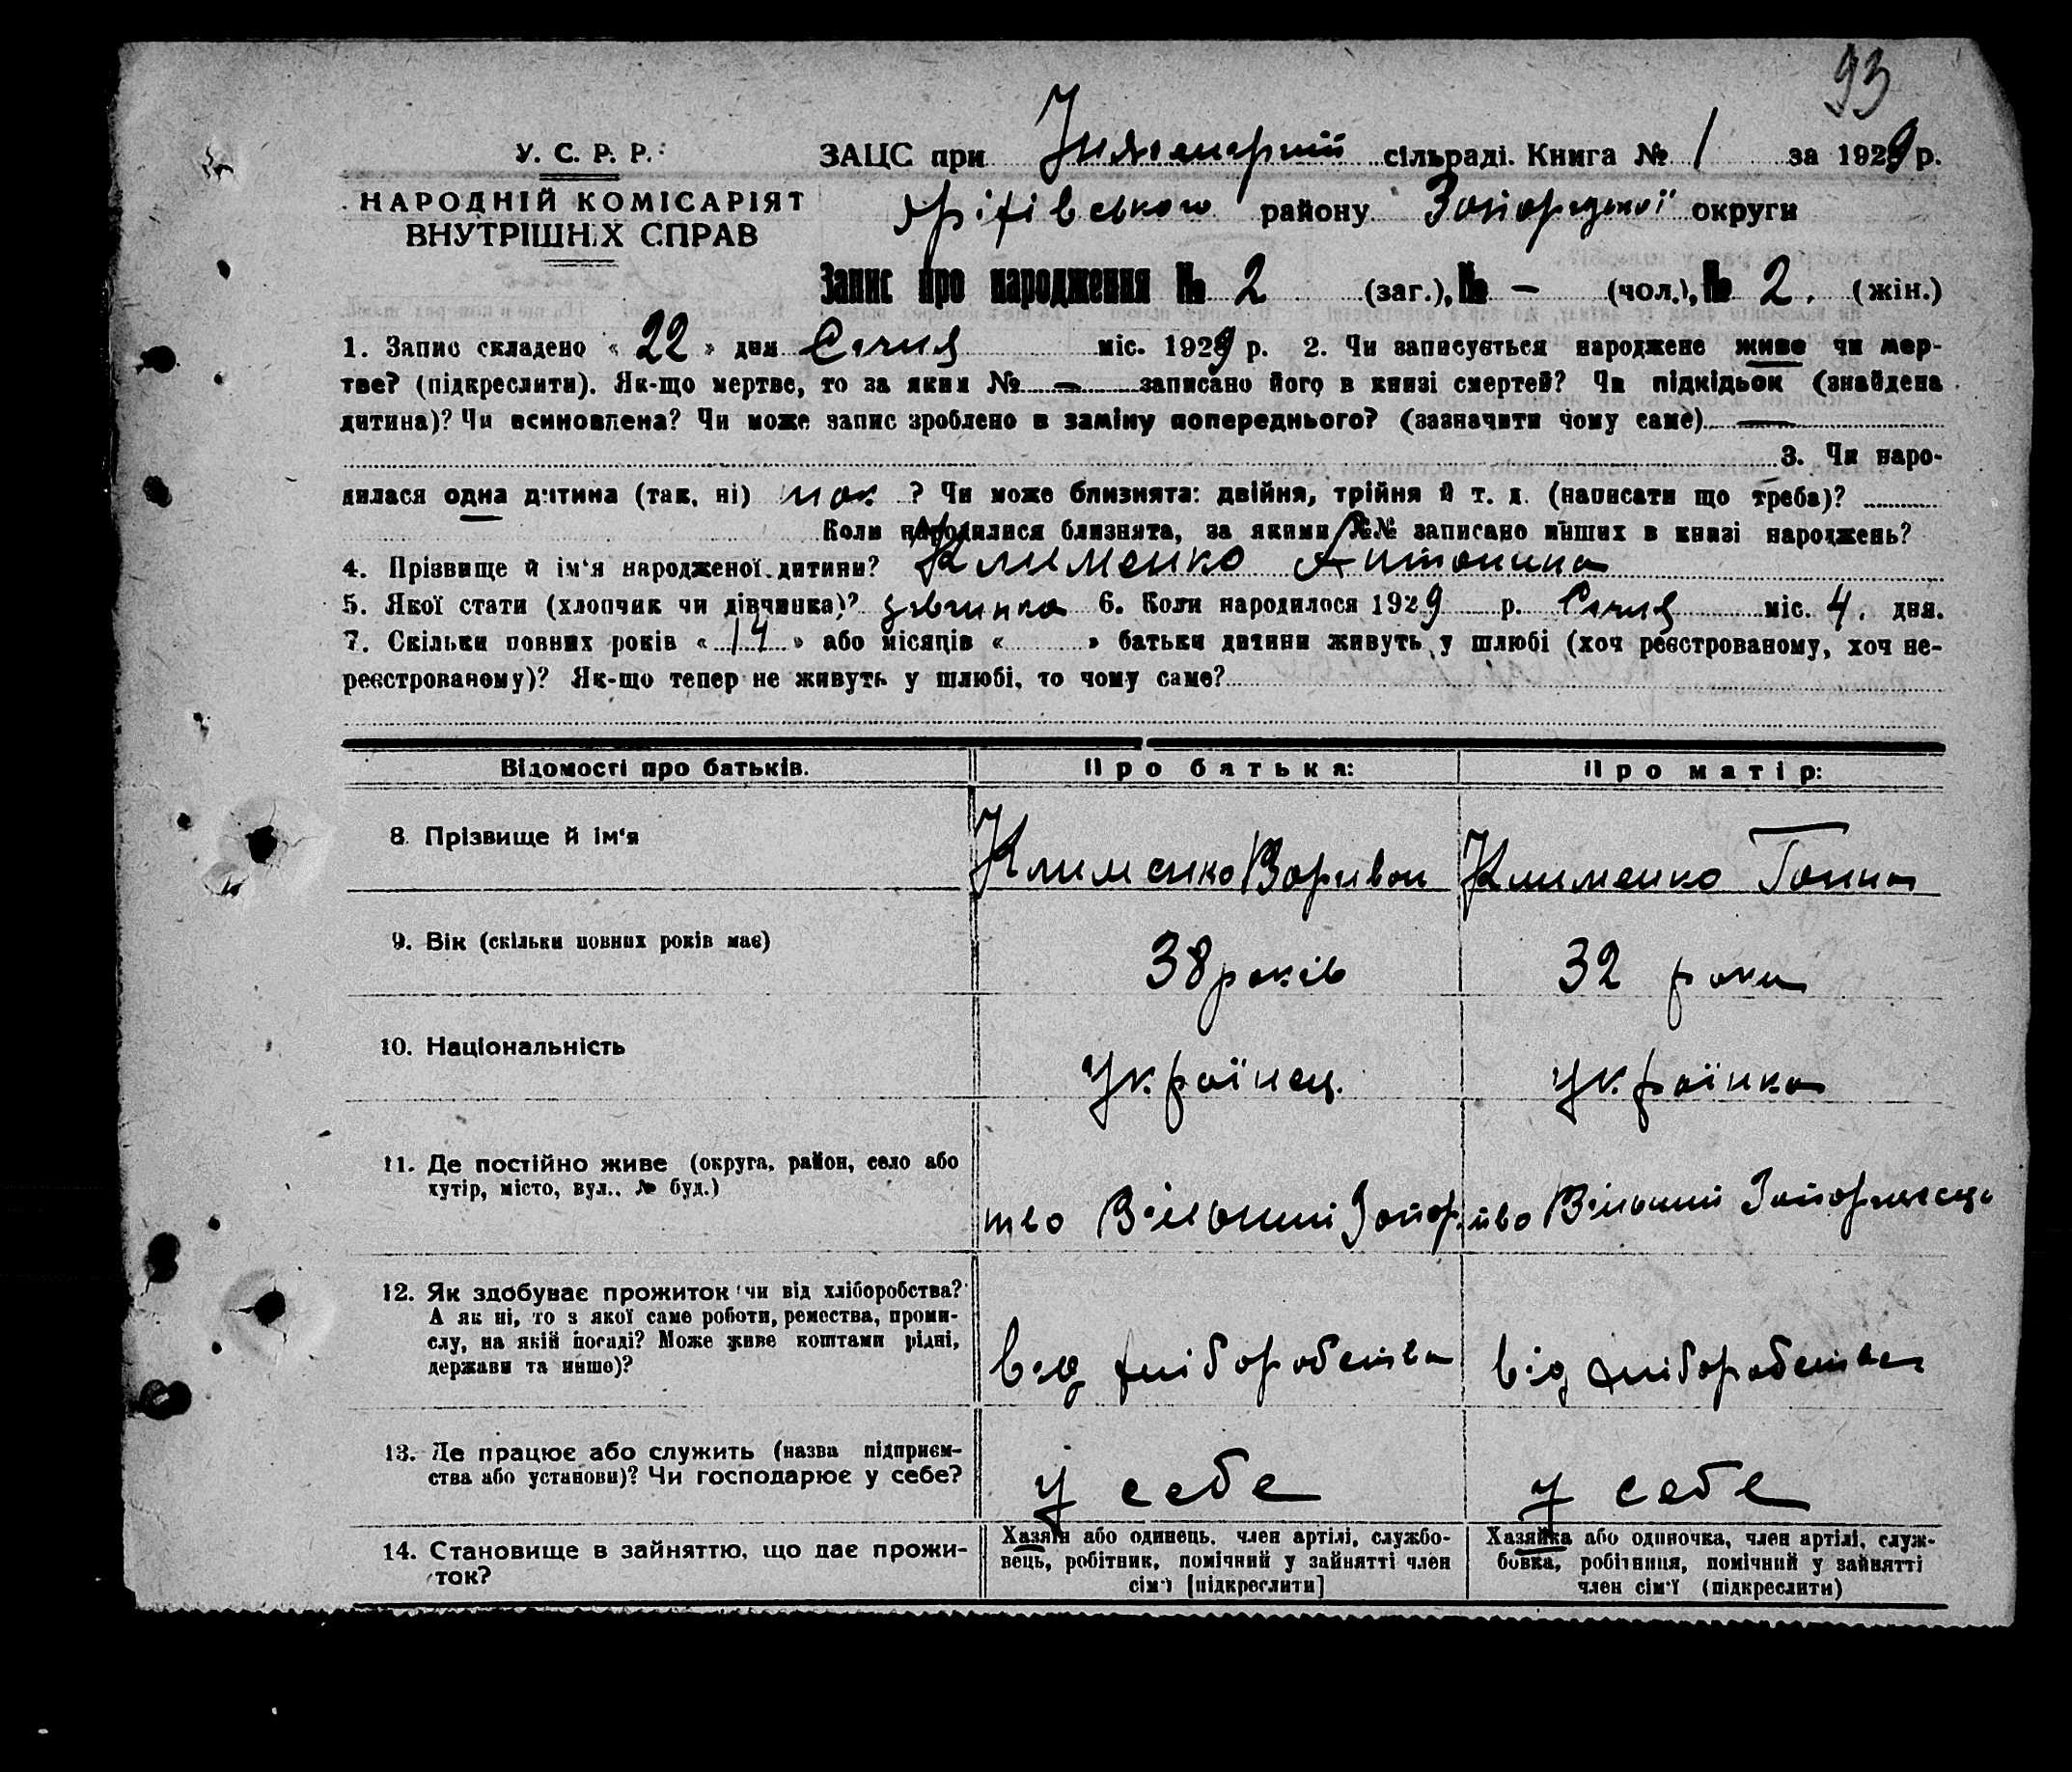 93
У. С. Р. Р.
НАРОДНІЙ КОМІСАРІЯТ
ВНУТРІШНІХ СПРАВ
ЗАЦС при сільраді. Книга № 1 за 1929 р.
Оріхівського району Запорізької округи
Запис про народження № 2 (заг.), № — (чол.), № 2. (жін.)
1. Запис складено « 22 » дня Січня міс. 1929 р. 2. Чи записується народжене живе чи мер-
тве? (підкреслити). Як-що мертве, то за яким № — записано його в книзі смертей? Чи підкідьок (знайдена
дитина)? Чи всиновлена? Чи може запис зроблено в заміну попереднього? (зазначити чому саме) —
3. Чи наро-
дилася одна дитина (так, ні) так ? Чи може близнята: двійня, трійня й т. д. (написати що треба)?
Коли народилися близнята, за якими №№ записано инших в книзі народжень?
4. Прізвище й ім‘я народженої дитини? Клименко Антонина
5. Якої стати (хлопчик чи дівчинка)? дівчинка 6. Коли народилося 1929 р. Січня міс. 4. дня.
7. Скільки повних років « 14 » або місяців « » батьки дитини живуть у шлюбі (хоч реєстрованому, хоч не-
реєстрованому)? Як-що тепер не живуть у шлюбі, то чому саме?
Відомості про батьків. Про батька: Про матір:
8. Прізвище й ім‘я Клименко Варивон Клименко Ганна
9. Вік (скільки повних років має) 38 років 32 роки
10. Національність Українець Українка
11. Де постійно живе (округа, район, село або
хутір, місто, вул., № буд.)
тво Вільний Запор. тво Вільний Запорожець
12. Як здобуває прожиток чи від хліборобства?
А як ні, то з якої саме роботи, ремества, проми-
слу, на якій посаді? Може живе коштами рідні,
держави та инше)?
від хліборобства від хліборобства
13. Де працює або служить (назва підприєм-
ства або установи)? Чи господарює у себе?
у себе у себе
14. Становище в зайняттю, що дає прожи-
ток?
Хазяїн або одинець, член артілі, службо-
вець, робітник, помічний у зайнятті член
сім‘ї [підкреслити]
Хазяйка або одиночка, член артілі, служ-
бовка, робітниця, помічний у зайнятті
член сім‘ї (підкреслити)